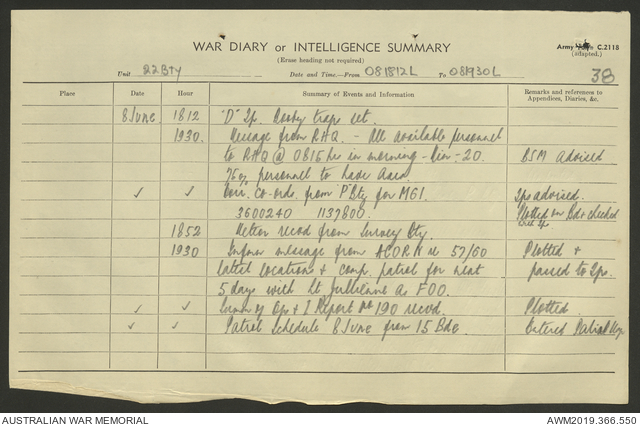 WAR DIARY or INTELLIGENCE SUMMARY
(Erase heading not required)
Army C.2118
(adapted.)
Unit 22 Bty Date and Time.—From 081812L To 081930L
38
Place Date Hour Summary of Events and Information Remarks and references to Appendices, Diaries, &c.
8 June 1812 "D" Tp. Booby traps set.
1930. Message from RHQ. - All available personnel
to RHQ @ 0815 hrs in morning - - 20. BSM Advised
75% personnel to have
✓ ✓ co-ords. from "P" Bty for MG1. Tps advised.
3600240 1137800. Plotted on Bd & checked
with Tp.
1852 Meteor recvd from Survey Bty.
1930 message from ACORN re 57/60 Plotted &
latest locations & comp. patrol for next passed to Tps.
5 days with Lt Jullienne as FOO.
✓ ✓ Summ of Ops & I Report No 190 recvd. Plotted.
✓ ✓ Patrol Schedule 8 June from 15 Bde. Entered Patrol
AUSTRALIAN WAR MEMORIAL AWM2019.366.550